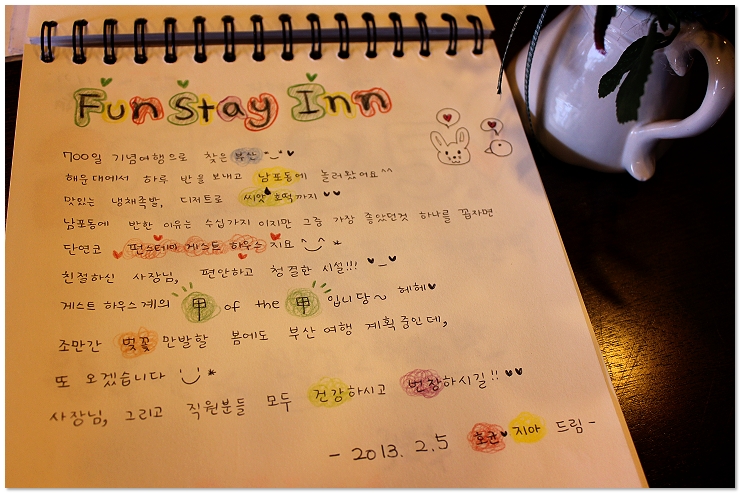 Fun Stay Inn
700일 기념여행으로 찾은 부산^_^♥
해운대에서 하루 반을 보내고 남포동에 놀러왔어요^^
맛있는 냉채족발, 디저트로 씨앗호떡까지♥♥
남포동에 반한 이유는 수십가지 이지만 그중 가장 좋았던것 하나를 꼽자면
단연코 펀스테이 게스트 하우스 지요 ^‿^ *
친절하신 사장님, 편안하고 청결한 시설!!! ♥_♥
게스트 하우스계의 甲 of the 甲 입니당~ 헤헤♥
조만간 벚꽃 만발할 봄에도 부산여행 계획중인데,
또 오겠습니다 '‿' *
사장님, 그리고 직원분들 모두 건강하시고 번창하시길!! ♥♥
- 2013. 2. 5 호균♥지아 드림 -